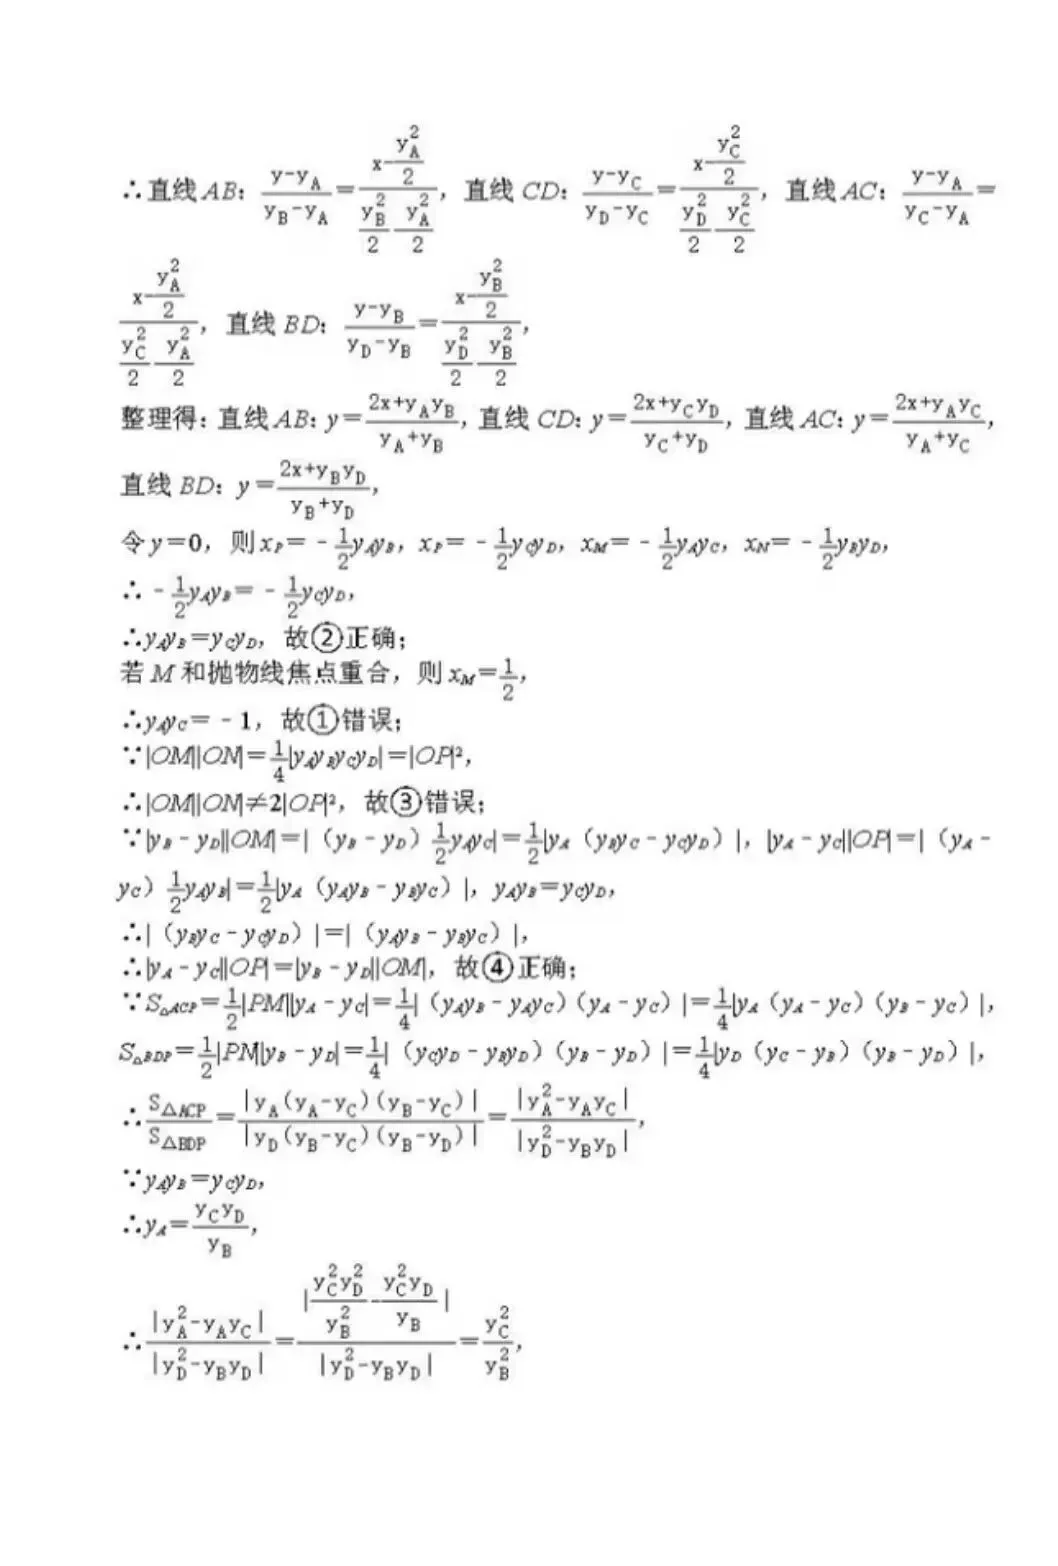 ∴直线AB：(y-y_A)/(y_B-y_A)=(x-y_A^2/2)/(y_B^2/2-y_A^2/2)，直线CD：(y-y_C)/(y_D-y_C)=(x-y_C^2/2)/(y_D^2/2-y_C^2/2)，直线AC：(y-y_A)/(y_C-y_A)=
(x-y_A^2/2)/(y_C^2/2-y_A^2/2)，直线BD：(y-y_B)/(y_D-y_B)=(x-y_B^2/2)/(y_D^2/2-y_B^2/2)，
整理得：直线AB：y=(2x+y_Ay_B)/(y_A+y_B)，直线CD：y=(2x+y_Cy_D)/(y_C+y_D)，直线AC：y=(2x+y_Ay_C)/(y_A+y_C)，
直线BD：y=(2x+y_By_D)/(y_B+y_D)，
令y=0，则x_P=-1/2y_Ay_B，x_P=-1/2y_Cy_D，x_M=-1/2y_Ay_C，x_N=-1/2y_By_D，
∴-1/2y_Ay_B=-1/2y_Cy_D，
∴y_Ay_B=y_Cy_D，故②正确；
若M和抛物线焦点重合，则x_M=1/2，
∴y_Ay_C=-1，故①错误；
∵|OM||ON|=1/4|y_Ay_By_Cy_D|=|OP|²，
∴|OM||ON|≠2|OP|²，故③错误；
∵|y_B-y_D||OM|=|（y_B-y_D）1/2y_Ay_C|=1/2|y_A（y_By_C-y_Cy_D）|，|y_A-y_C||OP|=|（y_A-
y_C）1/2y_Ay_B|=1/2|y_A（y_Ay_B-y_By_C）|，y_Ay_B=y_Cy_D，
∴|（y_By_C-y_Cy_D）|=|（y_Ay_B-y_By_C）|，
∴|y_A-y_C||OP|=|y_B-y_D||OM|，故④正确；
∵S_△ACP=1/2|PM||y_A-y_C|=1/4|（y_Ay_B-y_Ay_C）（y_A-y_C）|=1/4|y_A（y_A-y_C）（y_B-y_C）|，
S_△BDP=1/2|PN||y_B-y_D|=1/4|（y_Cy_D-y_By_D）（y_B-y_D）|=1/4|y_D（y_C-y_B）（y_B-y_D）|，
∴S_△ACP/S_△BDP=|y_A(y_A-y_C)(y_B-y_C)|/|y_D(y_B-y_C)(y_B-y_D)|=|y_A^2-y_Ay_C|/|y_D^2-y_By_D|，
∵y_Ay_B=y_Cy_D，
∴y_A=y_Cy_D/y_B，
∴|y_A^2-y_Ay_C|/|y_D^2-y_By_D|=|y_C^2y_D^2/y_B^2-y_C^2y_D/y_B|/|y_D^2-y_By_D|=y_C^2/y_B^2，